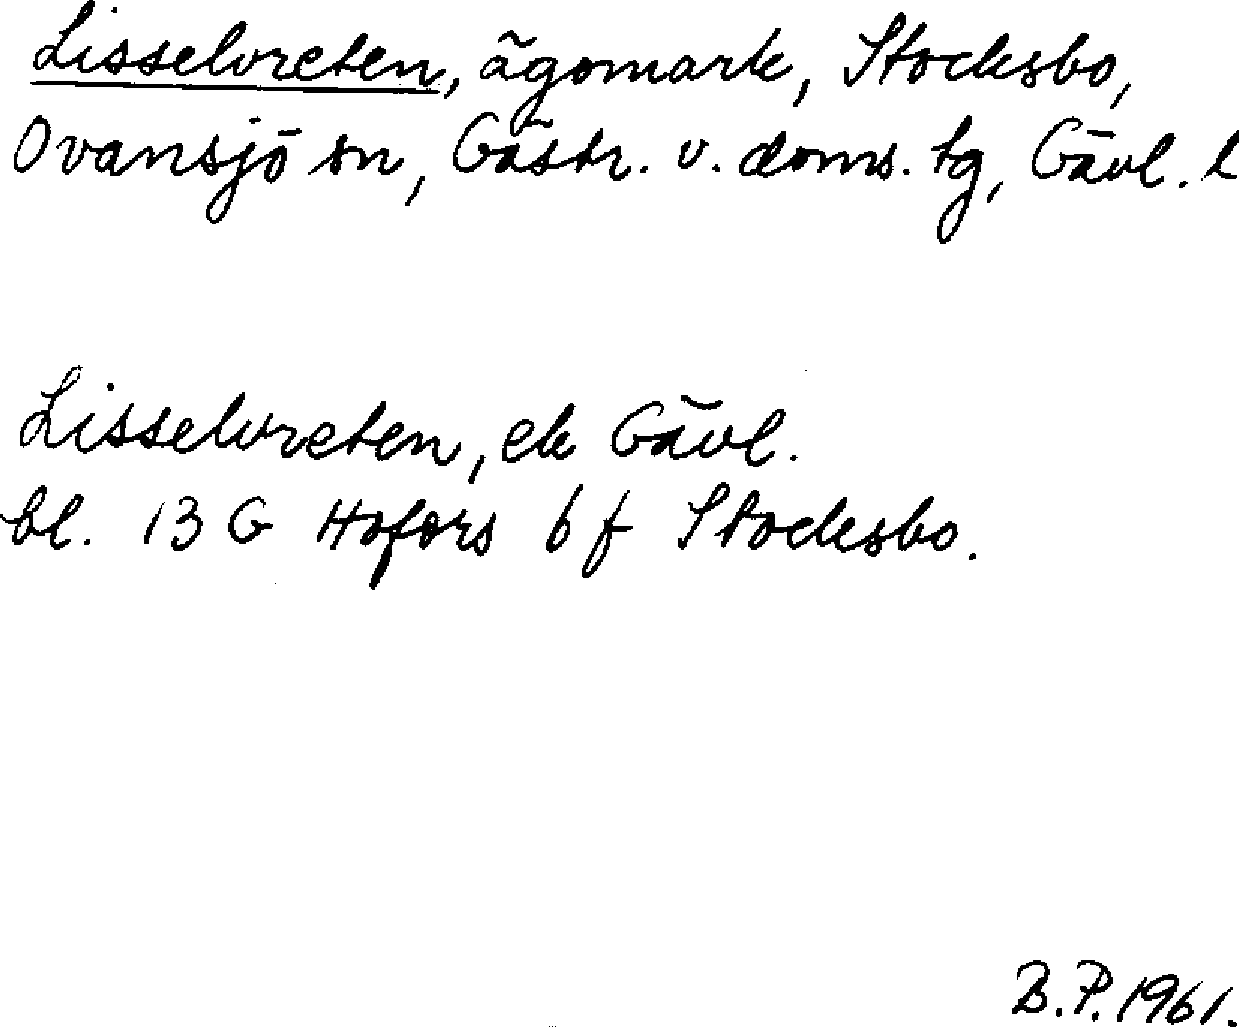 Lisselvreten, ägomark, Stocksbo,
Ovansjö sn, Gästr. v. doms. tg, Gävl. l
Lisselvreten, ek Gävl.
bl. 13 G Hofors 6 f Stocksbo.
B.P. 1961.